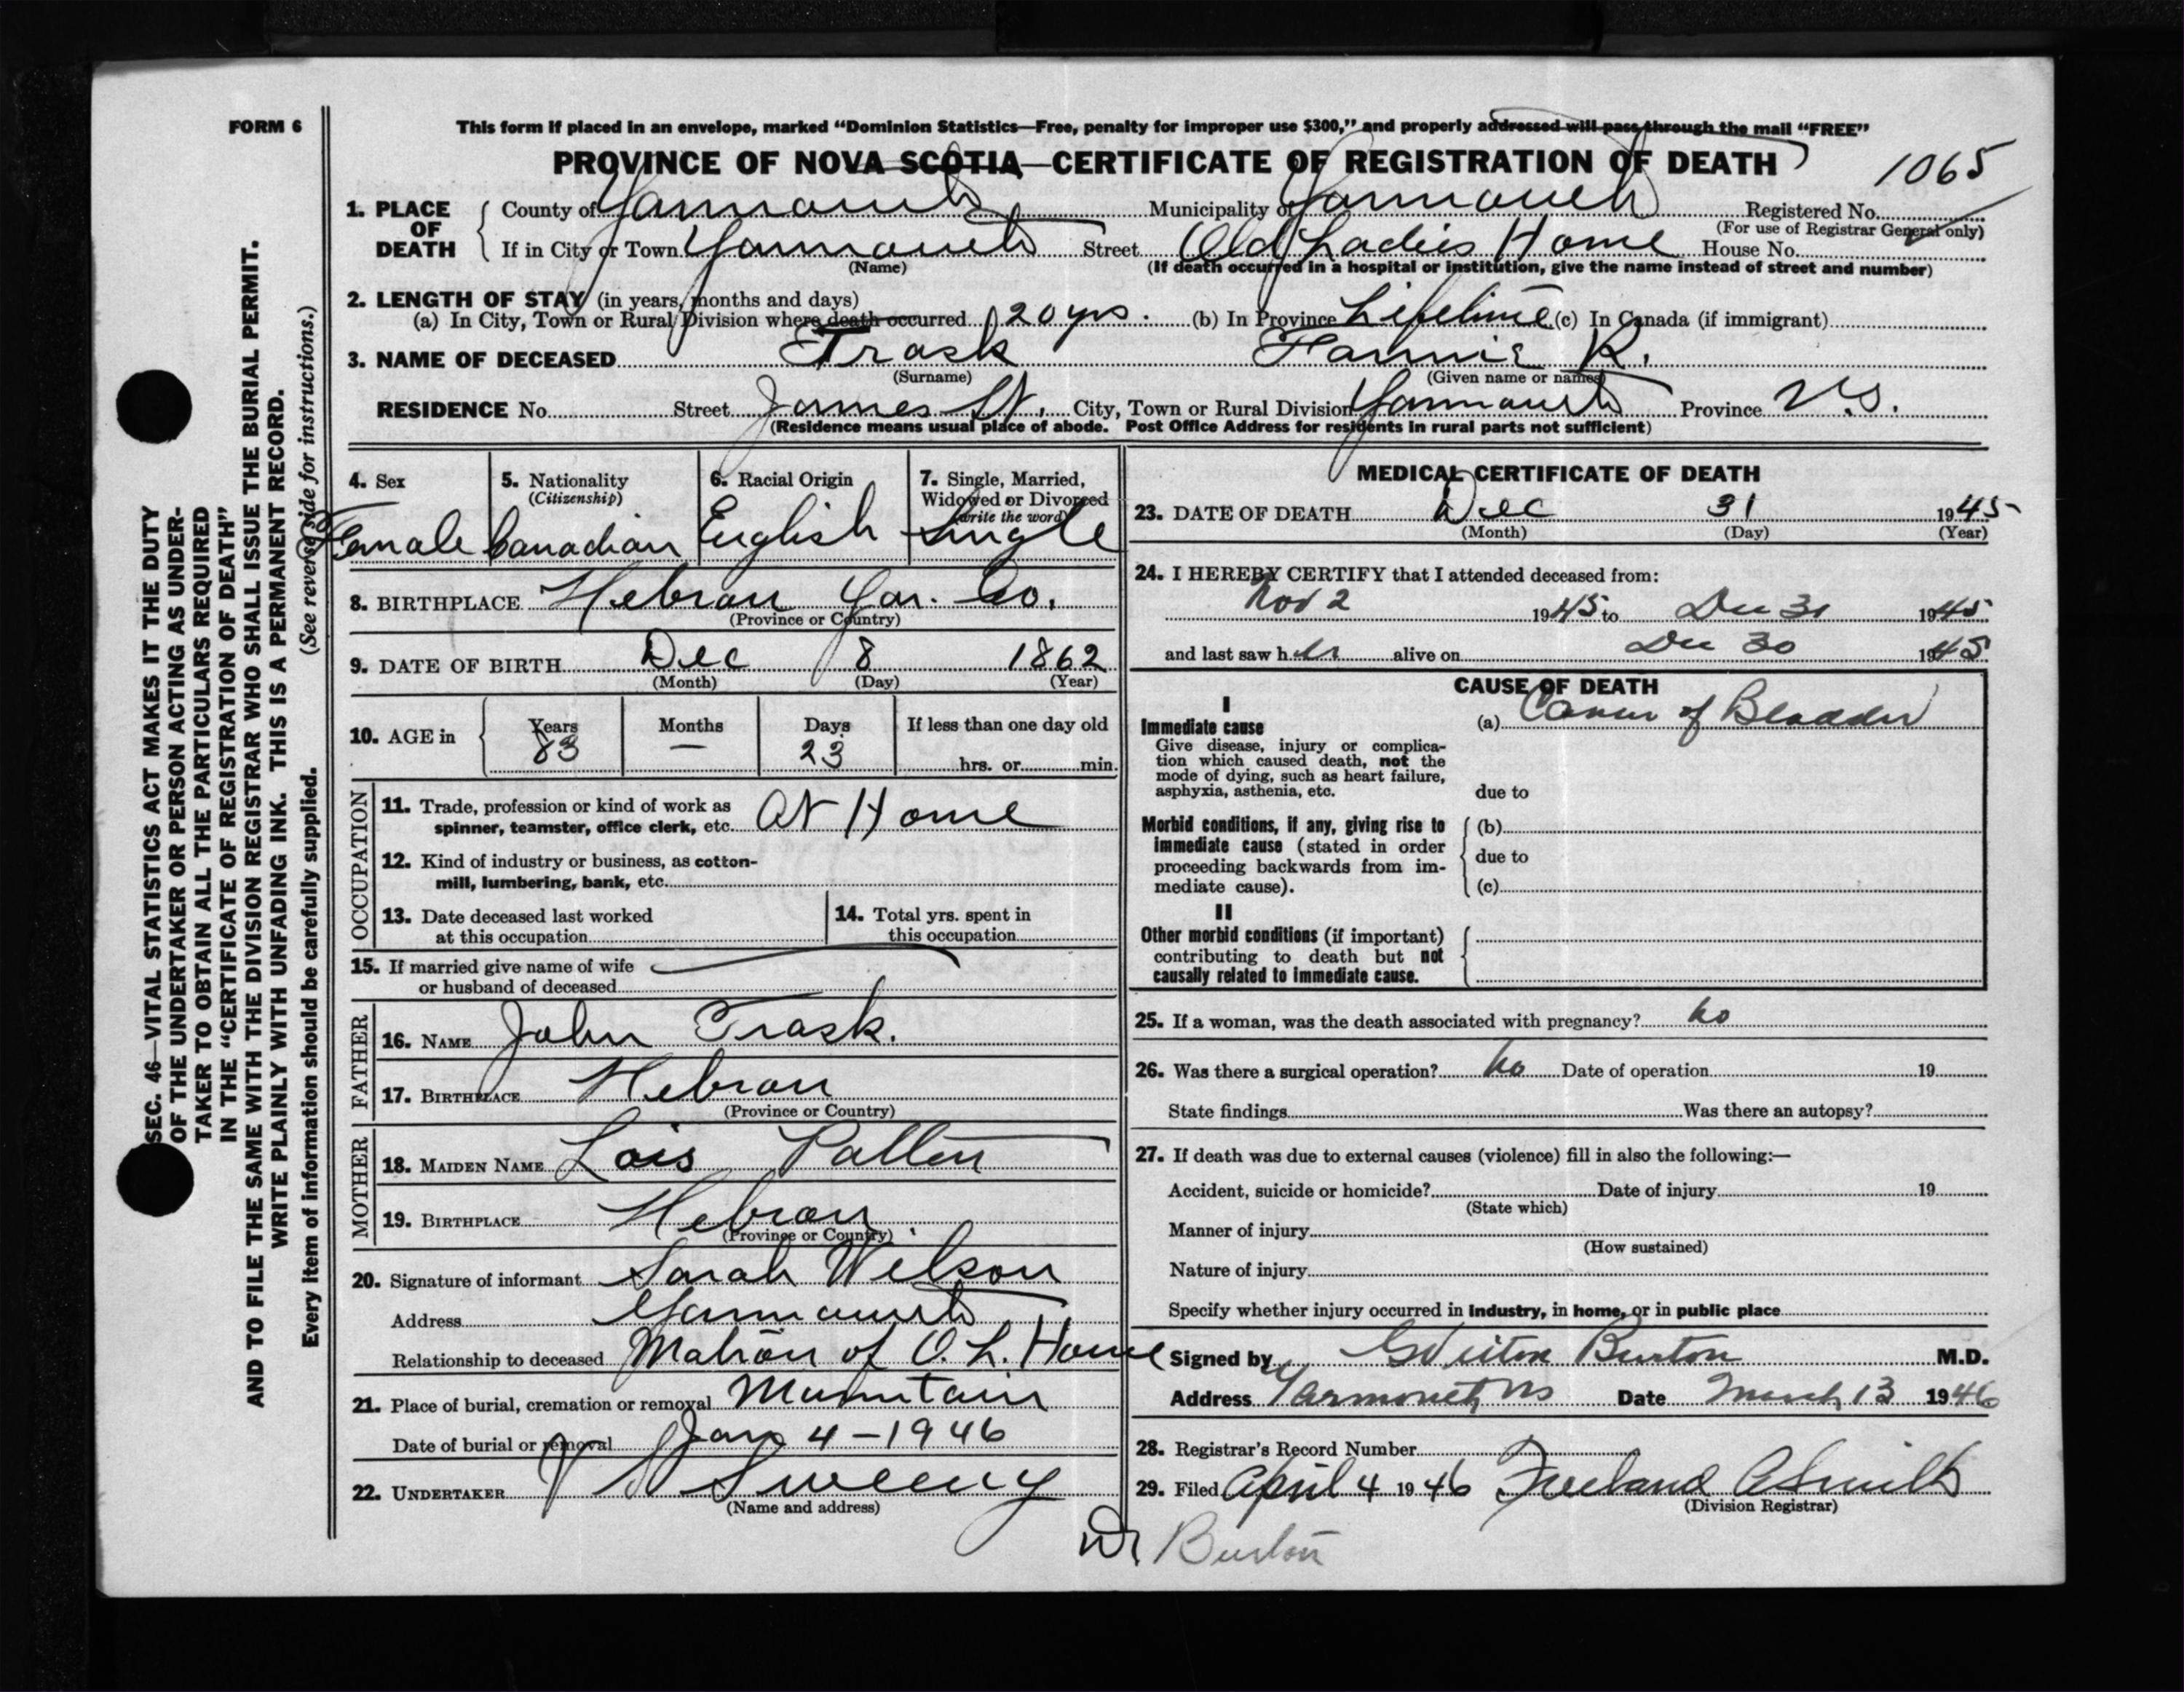 FORM 6
This form if placed in an envelope, marked “Dominion Statistics—Free, penalty for improper use $300,” and properly addressed will pass through the mail “FREE”
PROVINCE OF NOVA SCOTIA—CERTIFICATE OF REGISTRATION OF DEATH
1065
1. PLACE OF DEATH
County of Yarmouth Municipality of Yarmouth Registered No.
(For use of Registrar General only)
If in City or Town Yarmouth Street Old Ladies Home House No.
(Name) (If death occurred in a hospital or institution, give the name instead of street and number)
2. LENGTH OF STAY (in years, months and days)
(a) In City, Town or Rural Division where death occurred 20 yrs. (b) In Province Lifetime (c) In Canada (if immigrant)
3. NAME OF DECEASED Trask Fannie R.
(Surname) (Given name or names)
RESIDENCE No. Street James St. City, Town or Rural Division Yarmouth Province N.S.
(Residence means usual place of abode. Post Office Address for residents in rural parts not sufficient)
4. Sex
Female
5. Nationality
(Citizenship)
Canadian
6. Racial Origin
English
7. Single, Married,
Widowed or Divorced
(write the word)
Single
8. BIRTHPLACE Hebron Yar. Co.
(Province or Country)
9. DATE OF BIRTH Dec 8 1862
(Month) (Day) (Year)
10. AGE in
Years Months Days If less than one day old
83 — 23 hrs. or min.
OCCUPATION
11. Trade, profession or kind of work as
spinner, teamster, office clerk, etc. At Home
12. Kind of industry or business, as cotton-
mill, lumbering, bank, etc.
13. Date deceased last worked
at this occupation
14. Total yrs. spent in
this occupation
15. If married give name of wife
or husband of deceased
FATHER
16. NAME John Trask.
17. BIRTHPLACE Hebron
(Province or Country)
MOTHER
18. MAIDEN NAME Lois Patten
19. BIRTHPLACE Hebron.
(Province or Country)
20. Signature of informant Sarah Welson
Address Yarmouth
Relationship to deceased Matron of O. L. Home
21. Place of burial, cremation or removal Mountain
Date of burial or removal Jan 4 - 1946
22. UNDERTAKER V S Sweeny
(Name and address)
MEDICAL CERTIFICATE OF DEATH
23. DATE OF DEATH Dec 31 1945
(Month) (Day) (Year)
24. I HEREBY CERTIFY that I attended deceased from:
Nov 2 1945 to Dec 31 1945
and last saw her alive on Dec 30 1945
CAUSE OF DEATH
I
Immediate cause (a) Cancer of Bladder
Give disease, injury or complica-
tion which caused death, not the
mode of dying, such as heart failure,
asphyxia, asthenia, etc. due to
Morbid conditions, if any, giving rise to (b)
immediate cause (stated in order
proceeding backwards from im- due to
mediate cause). (c)
II
Other morbid conditions (if important)
contributing to death but not
causally related to immediate cause.
25. If a woman, was the death associated with pregnancy? no
26. Was there a surgical operation? no Date of operation 19
State findings Was there an autopsy?
27. If death was due to external causes (violence) fill in also the following:—
Accident, suicide or homicide? Date of injury 19
(State which)
Manner of injury
(How sustained)
Nature of injury
Specify whether injury occurred in industry, in home, or in public place
Signed by Burton M.D.
Address Yarmouth NS Date March 13 1946
28. Registrar's Record Number
29. Filed April 4 1946 Freeland A Smith
(Division Registrar)
Dr Burton
SEC. 46—VITAL STATISTICS ACT MAKES IT THE DUTY
OF THE UNDERTAKER OR PERSON ACTING AS UNDER-
TAKER TO OBTAIN ALL THE PARTICULARS REQUIRED
IN THE “CERTIFICATE OF REGISTRATION OF DEATH”
AND TO FILE THE SAME WITH THE DIVISION REGISTRAR WHO SHALL ISSUE THE BURIAL PERMIT.
WRITE PLAINLY WITH UNFADING INK. THIS IS A PERMANENT RECORD.
Every item of information should be carefully supplied. (See reverse side for instructions.)